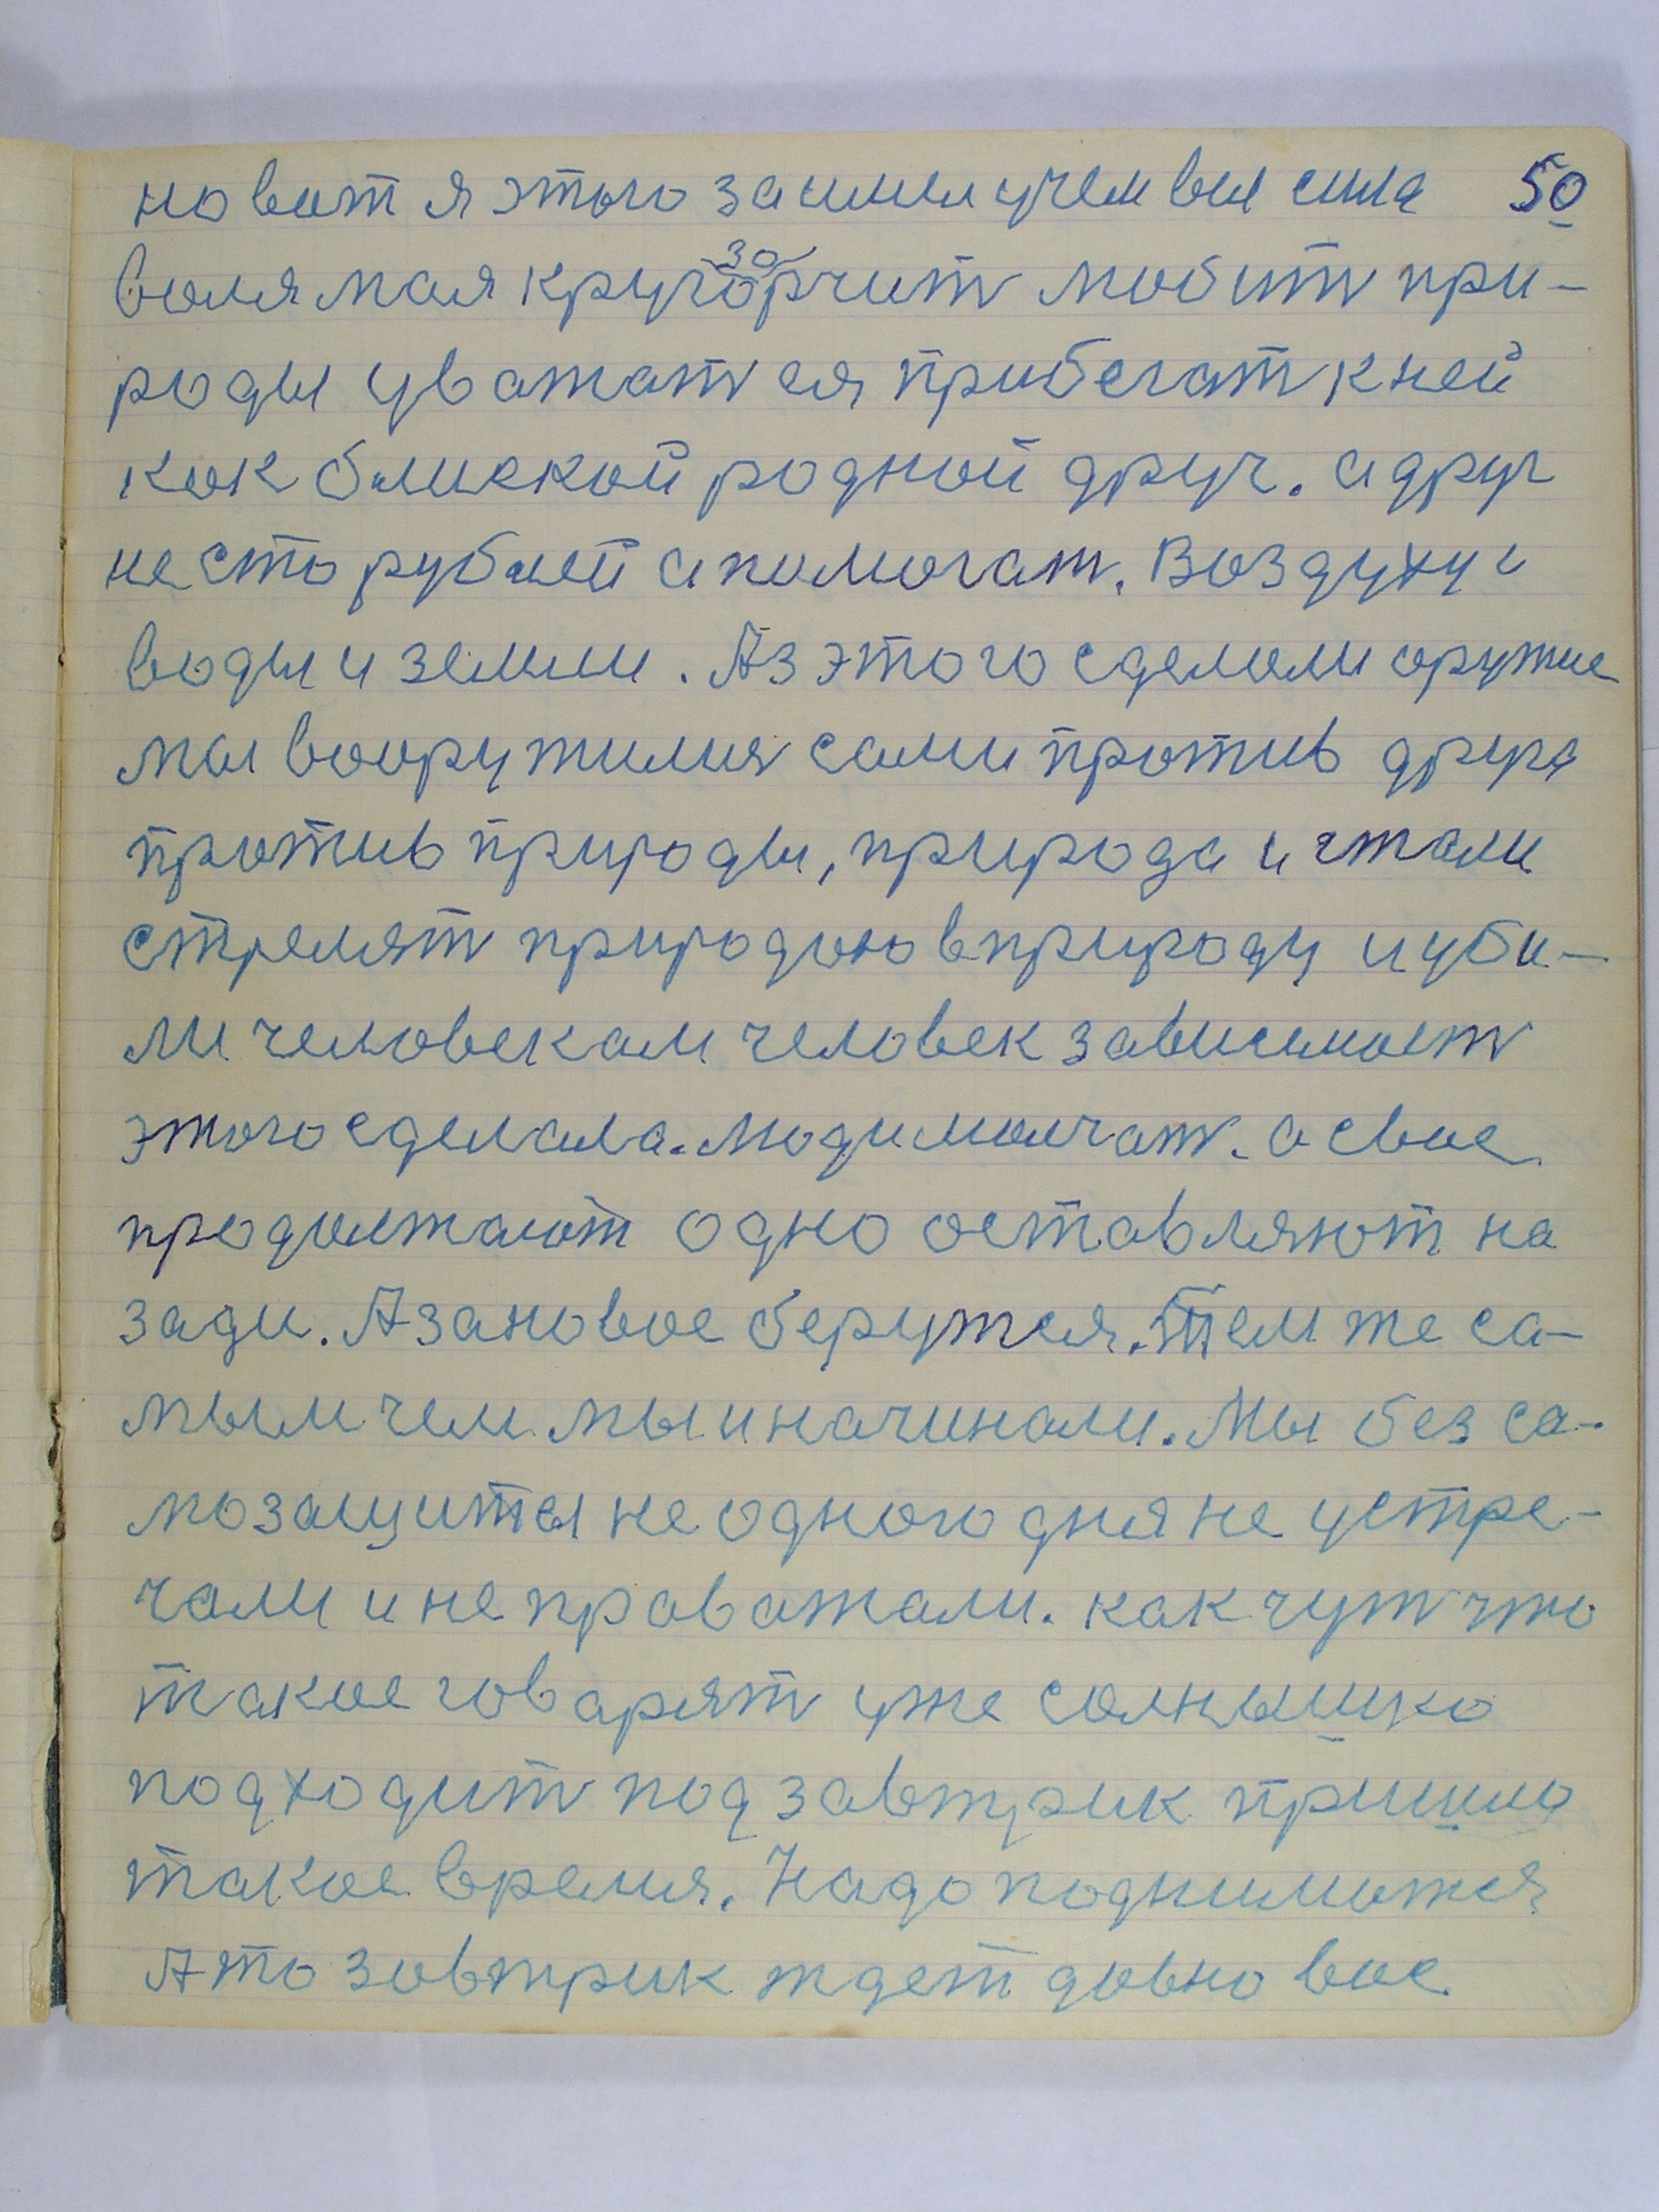 но вот я этого заимел учем вы сила 50
воля моя кругозорчить любить при-
роды уважать ея прибегат к ней
как близкой родной друг. а друг
не сто рублей а помогат. Воздуху и
воды и земли. Аз этого сделали оружие
мы вооружилися сами против друга
против природы, природа и стали
стрелять природою в природу и уби-
ли человекам человек зависимость
этого сделала. Люди молчат. а свое
продолжают одно оставляют на
зади. А за новое берутся. Тем же са-
мым чем мы и начинали. Мы без са-
мозащиты не одного дня не устре-
чали и не праважали. как чуть что
такое говарять уже солнышко
подходить под завтрик пришло
такое время. Надо подниматся
А то завтрик ждет довно вас